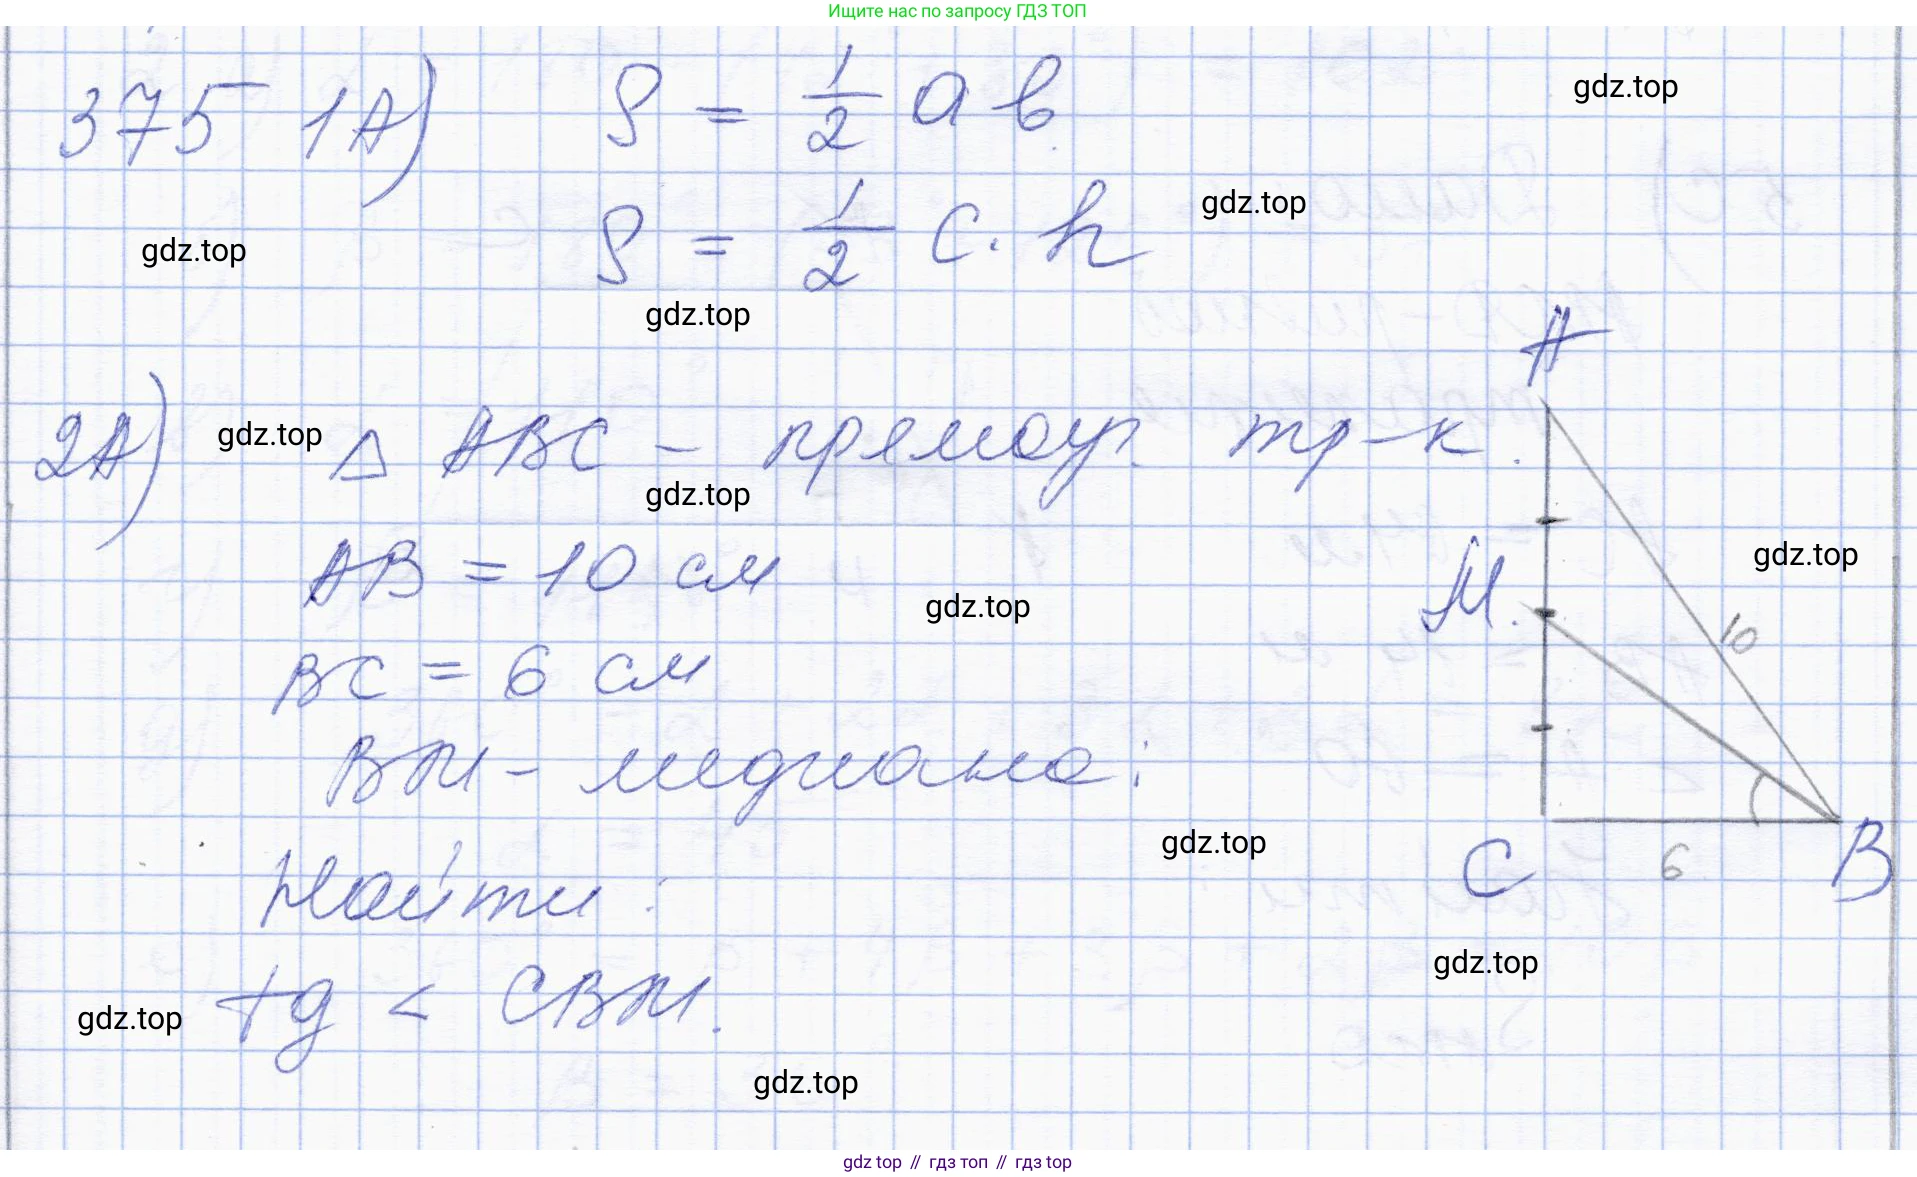 Ищите нас по запросу ГДЗ ТОП
375 1А) S = 1/2 a b.
gdz.top
S = 1/2 c · h
gdz.top
gdz.top
gdz.top
A
2А) △ ABC – прямоуг. тр-к.
gdz.top
gdz.top
AB = 10 см
gdz.top
M.
gdz.top
10
BC = 6 см
BM – медиана;
gdz.top
C 6 B
Найти:
gdz.top
tg < CBM.
gdz.top
gdz.top
gdz top // гдз топ // гдз top